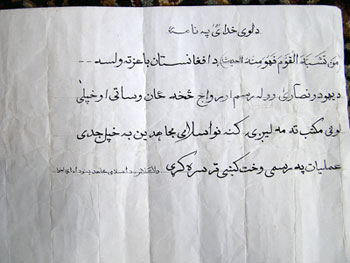 د لوی خدای په نامه
من تشبه القوم فهو منه الحدیث، د افغانستان باعزته ولسه --
د یهود و نصاری د ورله رسم او رواج څخه ځان وساتی او خپلی
لوڼی مکتب ته مه لیږی کنه نو اسلامی مجاهدین به خپل جدی
عملیات په رسمی وخت کښی تر سره کړی